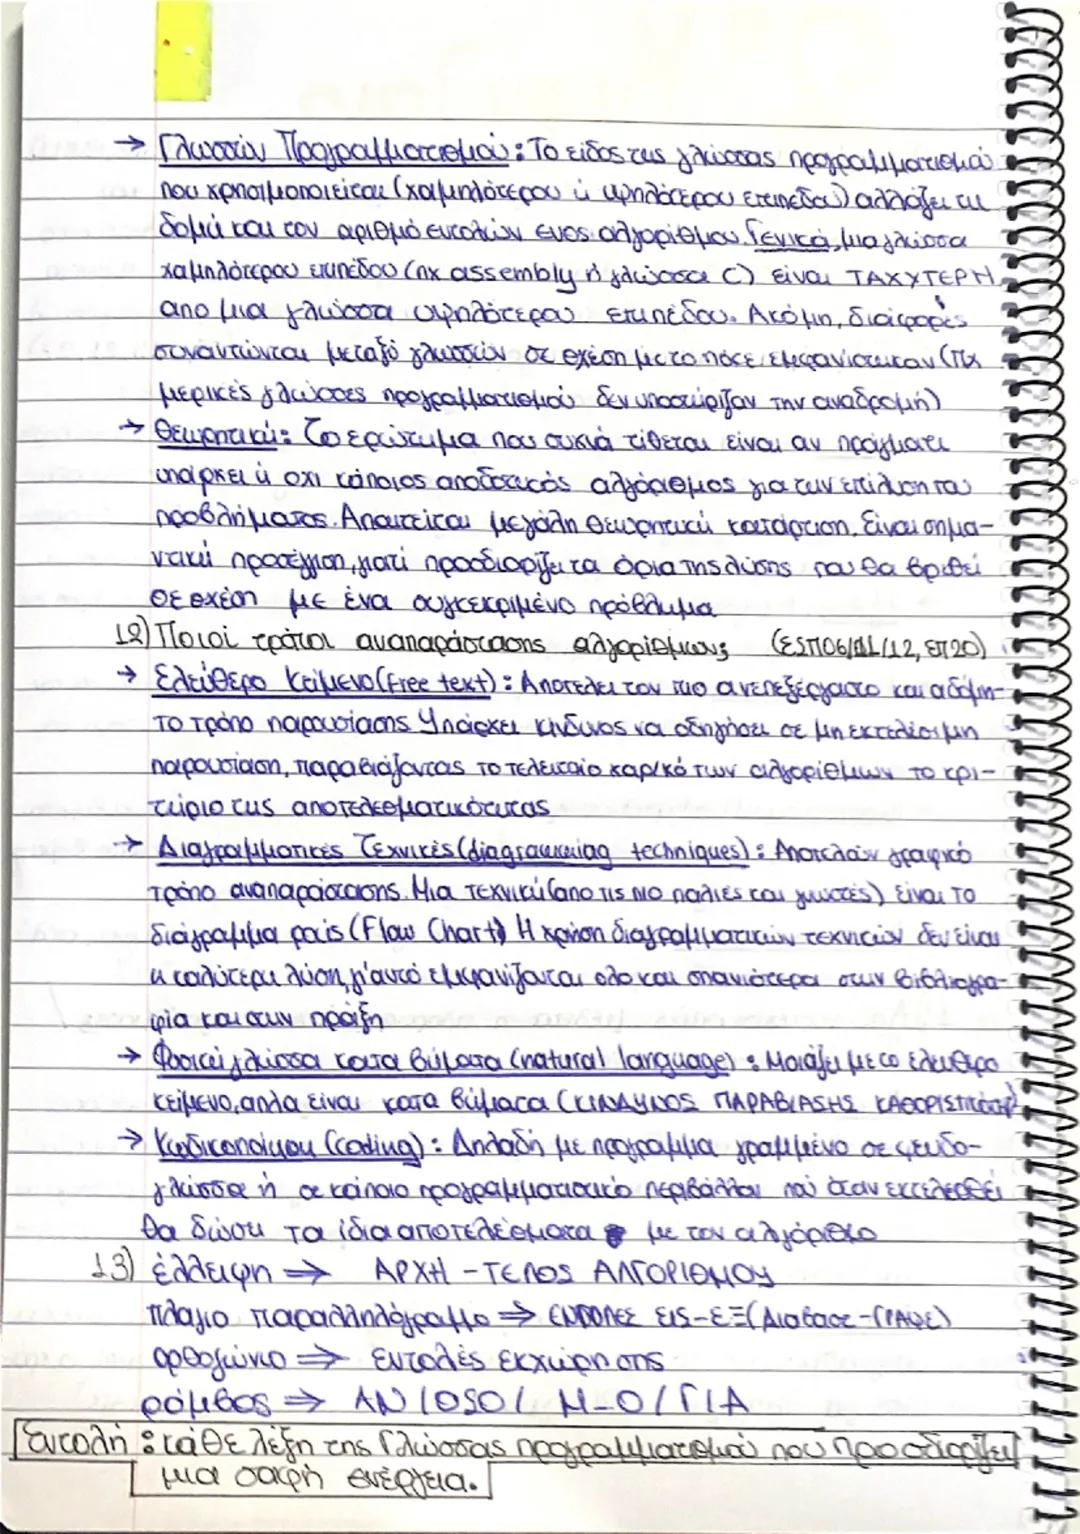 → Γλωσσών Προγραμματισμού: Το είδος της γλώσσας προγραμματισμού
που χρησιμοποιείται (χαμηλότερου ή υψηλότερου επιπέδου) αλλάζει τη
δομή και τον αριθμό εντολών ενός αλγορίθμου. Γενικά, μια γλώσσα
χαμηλότερου επιπέδου (πχ assembly ή γλώσσα C) είναι ΤΑΧΥΤΕΡΗ
από μια γλώσσα υψηλότερου επιπέδου. Ακόμη, διαφορές
συναντώνται μεταξύ γλωσσών σε σχέση με το πότε εμφανίστηκαν (πχ
μερικές γλώσσες προγραμματισμού δεν υποστήριζαν την αναδρομή)
→ Θεωρητική: Το ερώτημα που συχνά τίθεται είναι αν πράγματι
υπάρχει ή όχι κάποιος αποδοτικός αλγόριθμος για την επίλυση του
προβλήματος. Απαιτείται μεγάλη θεωρητική κατάρτιση. Είναι σημα-
ντική προσέγγιση, γιατί προσδιορίζει τα όρια της λύσης που θα βρεθεί
σε σχέση με ένα συγκεκριμένο πρόβλημα
12) Ποιοί τρόποι αναπαράστασης αλγορίθμων; (ΕΣΠ06/ΔΛ/12, ΕΠ20)
→ Ελεύθερο Κείμενο (Free text): Αποτελεί τον πιο ανεπεξέργαστο και αδόμη-
το τρόπο παρουσίασης Υπάρχει κίνδυνος να οδηγήσει σε μη εκτελέσιμη
παρουσίαση, παραβιάζοντας το τελευταίο χαρ/κό των αλγορίθμων το κρι-
τήριο της αποτελεσματικότητας
→ Διαγραμματικές Τεχνικές (diagramming techniques): Αποτελούν γραφικό
τρόπο αναπαράστασης. Μια τεχνική (από τις πιο παλιές και γνωστές) είναι το
διάγραμμα ροής (Flow Chart) Η χρήση διαγραμματικών τεχνικών δεν είναι
η καλύτερη λύση, γι'αυτό εμφανίζονται όλο και σπανιότερα στην βιβλιογρα-
φία και στην πράξη
→ Φυσική γλώσσα κατα βήματα (natural language): Μοιάζει με το ελεύθερο
κείμενο, απλα είναι κατα βήματα (ΚΙΝΔΥΝΟΣ ΠΑΡΑΒΙΑΣΗΣ ΚΑΘΟΡΙΣΤΙΚΟΤΗΤ)
→ Κωδικοποίηση (coding): Δηλαδή με πρόγραμμα γραμμένο σε ψευδο-
γλώσσα ή σε κάποιο προγραμματιστικό περιβάλλον που όταν εκτελεσθεί
θα δώσει τα ίδια αποτελέσματα με τον αλγόριθμο
13) έλλειψη ⇒ ΑΡΧΗ - ΤΕΛΟΣ ΑΛΓΟΡΙΘΜΟΥ
πλάγιο παραλληλόγραμμο ⇒ ΕΝΤΟΛΕΣ ΕΙΣ-ΕΞ (Διαβασε - ΓΡΑΨΕ)
ορθογώνιο ⇒ εντολές εκχώρησης
ρόμβος ⇒ ΑΝ/ΟΣΟ/ Μ_Ο/ΓΙΑ
Εντολή: κάθε λέξη της Γλώσσας προγραμματισμού που προσδιορίζει
μια σαφή ενέργεια.